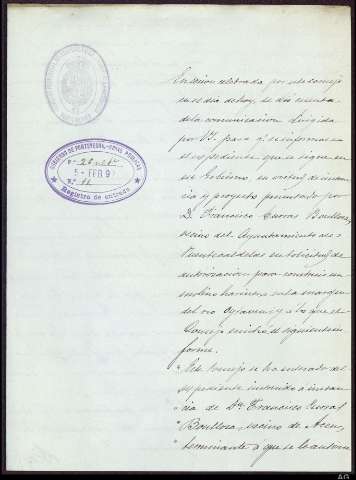 GOBIERNO DE PONTEVEDRA - OBRAS PUBLICAS
5 - FEB 9
Nº 11
Registro de entrada
En sesion celebrada por este Consejo
en el dia de hoy, se dió cuenta
de la comunicacion dirigida
por V.S. para q. se informase
el expediente que se sigue en
ese Gobierno en virtud de instan
cia y proyecto presentado por
D. Francisco Couras Boullosa,
vecino del Ayuntamiento de
Puentecaldelas en solicitud de
autorizacion para construir un
molino harinero en la margen
del rio y a lo que el
Consejo emitió el siguiente in
forme.
" Este Consejo se ha enterado del
" expediente instruido á instan
" cia de Dn Francisco
" Boullosa, vecino de
" terminante á que se le autorice
AG